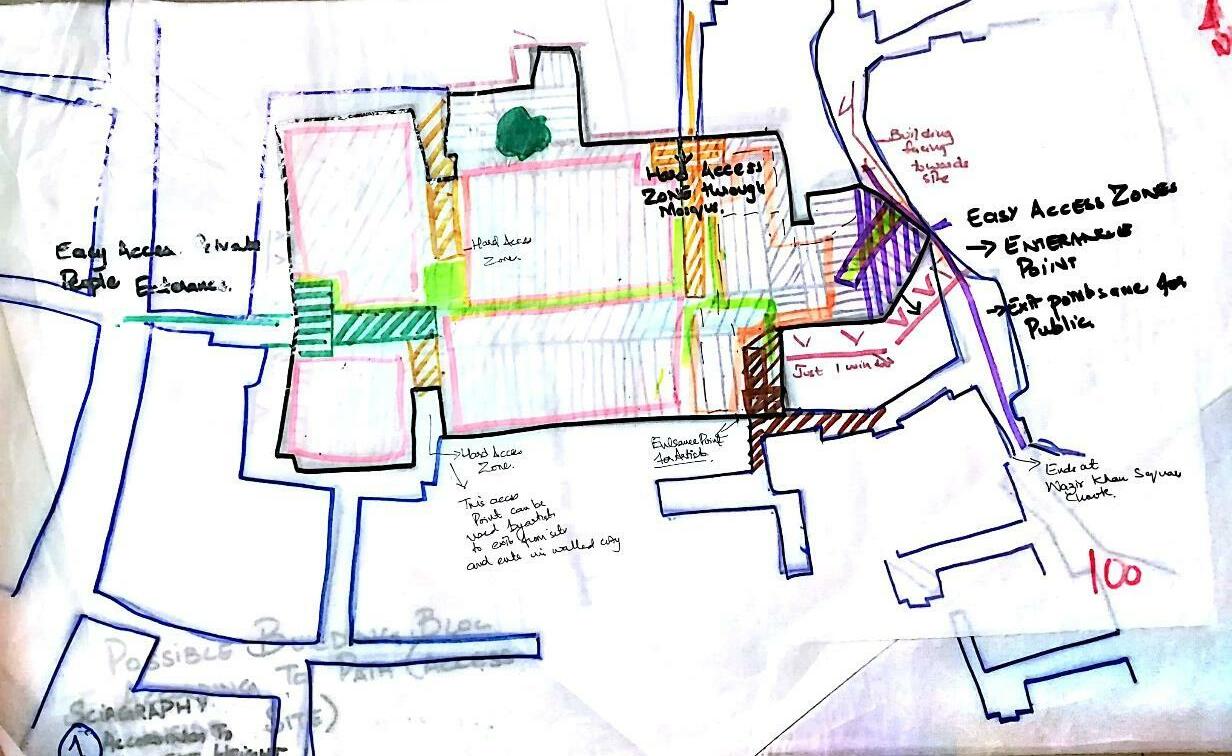 N
Building
facing
towards
site
Hard Access
Zone through
Mosque.
Easy Access Zones
→ Enterance
Point
→ Exit points are for
Public
Easy Acces Private
People Enterance.
Hard Access
Zone.
Just 1 window
Entrance Point
for Artists.
Hard Access
Zone.
This access
Point can be
used by artists
to exit from site
and enter in walled city
Ends at
Wazir Khan Square
Chowk.
100
Possible Building Bloc
To Path (Access
Site)
Sciagraphy
According To
Height
1